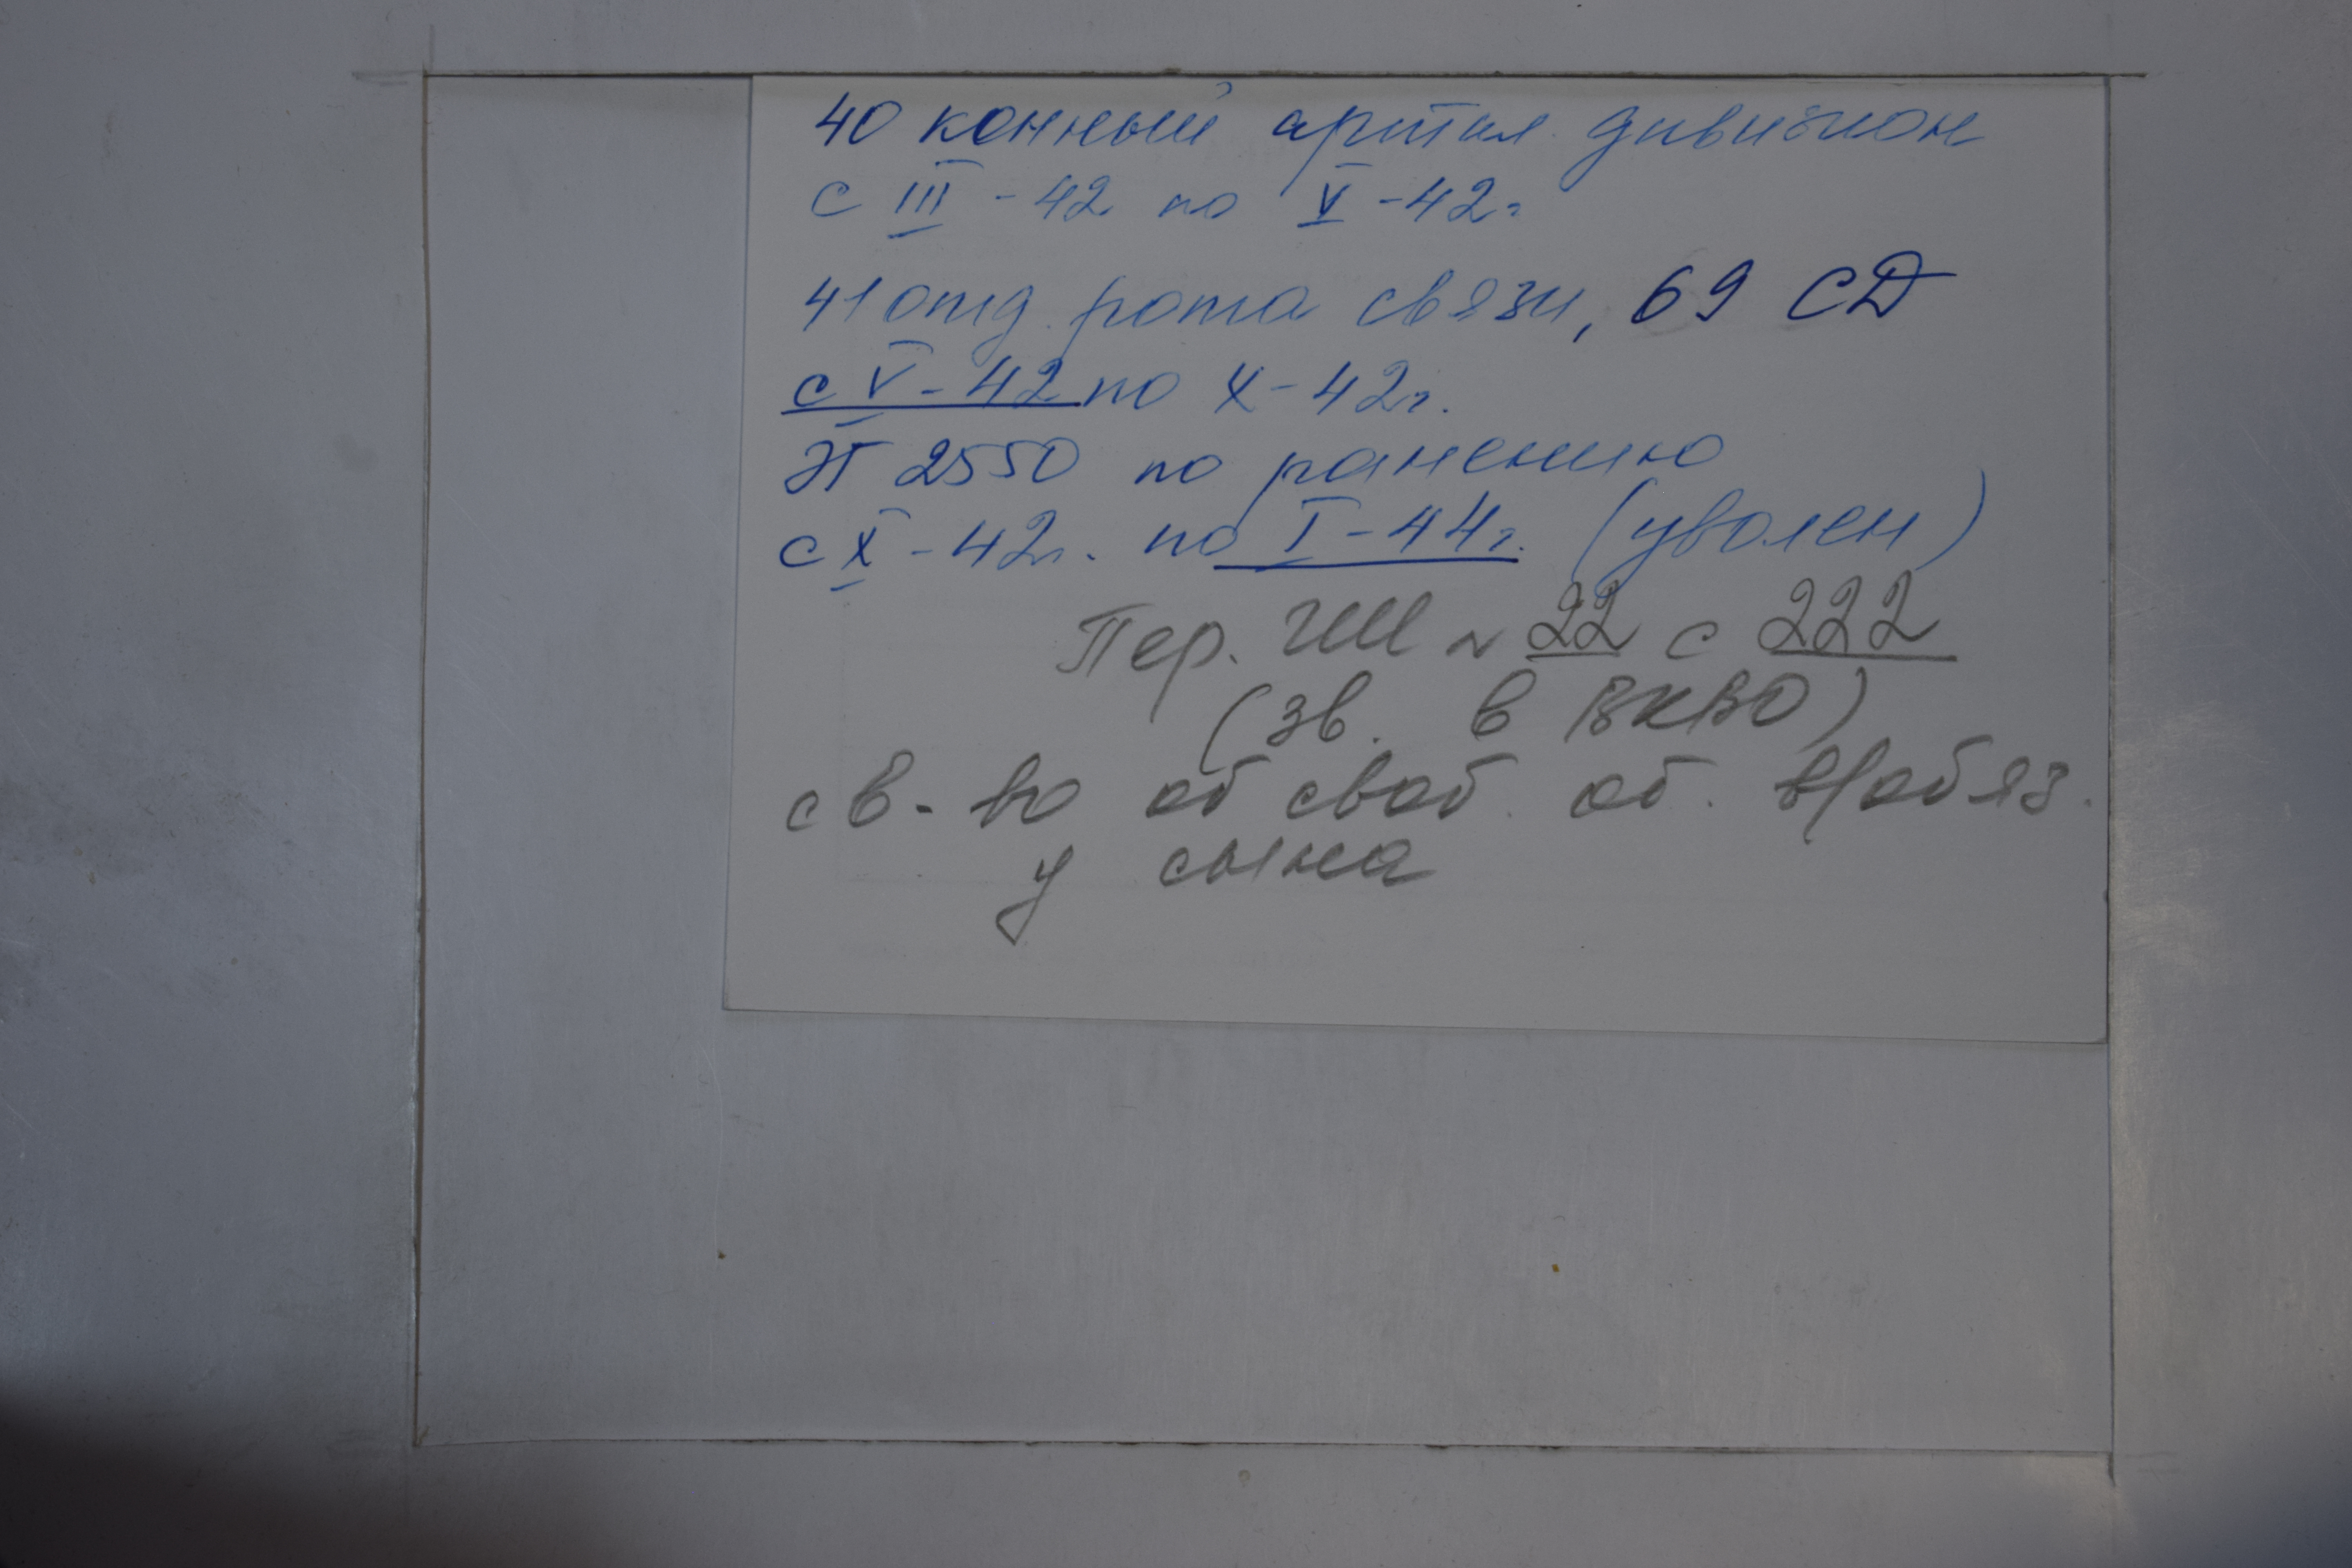 40 конный артил. дивизион
с III - 42 по V - 42г
41 отд. рота связи, 69 СД
с V - 42 по X - 42г.
ЭГ 2550 по ранению
с X - 42г. по I - 44г. (уволен)
Пер. ГШ № 22 с 222
(зв. в ВКВО)
св-во об освоб. об. в/обяз.
у сына